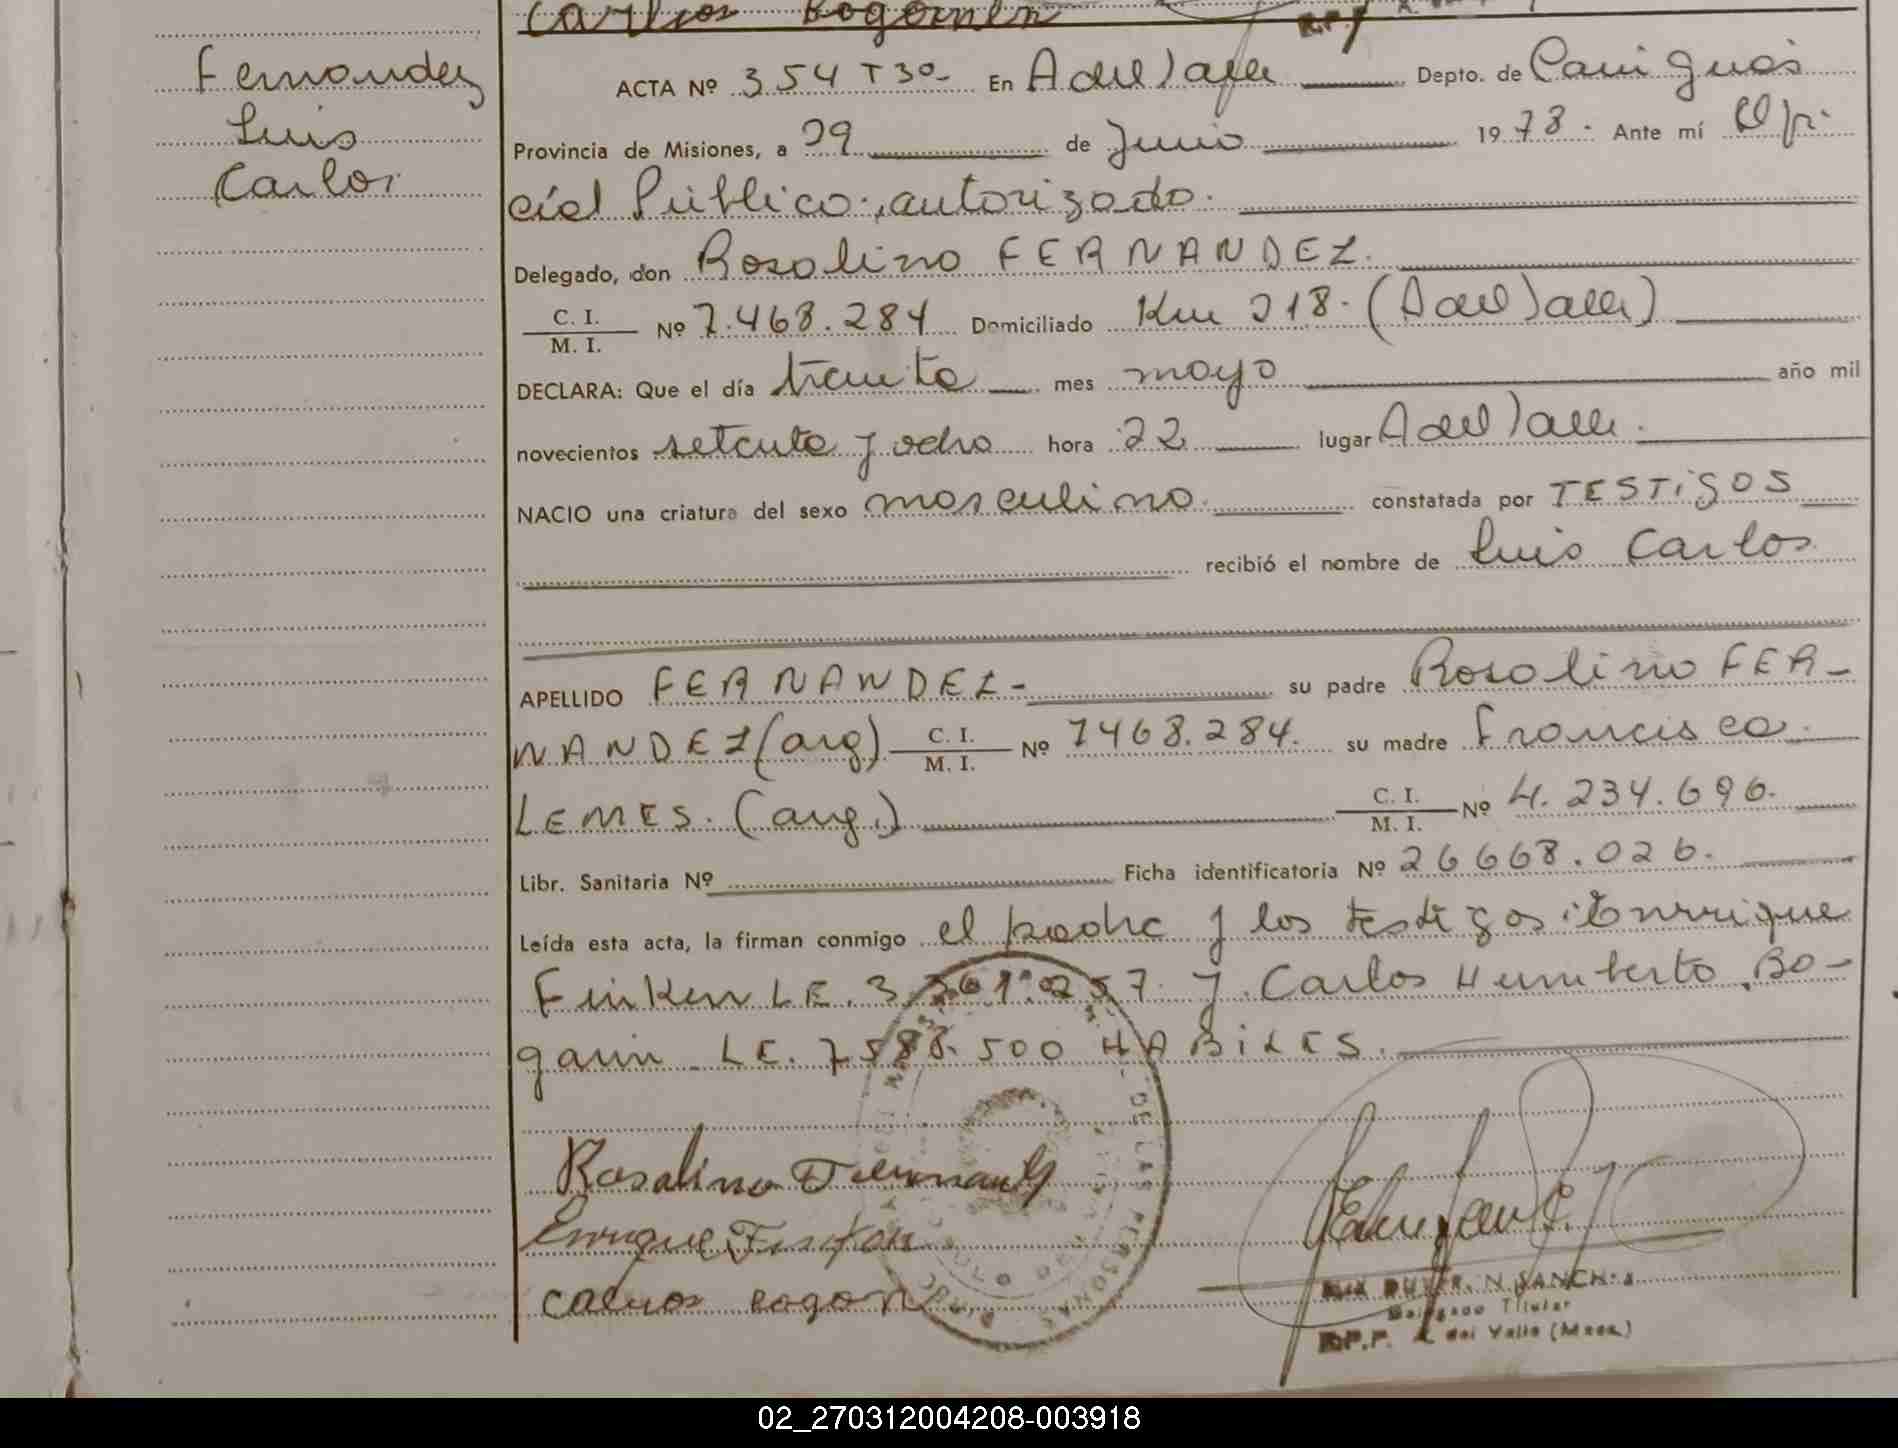 Carlos Bogarin
R.P.
Fernandez
Luis
Carlos
ACTA Nº 354 T 3º- En A del Valle Depto. de Cainguás
Provincia de Misiones, a 29 de Junio 1978. Ante mí Ofi
cial Público, autorizado.
Delegado, don Rosolino FERNANDEZ.
C. I.
M. I. Nº 7.468.284 Domiciliado Km 218. (A del Valle)
DECLARA: Que el día treinta mes mayo año mil
novecientos setenta y ocho hora 22 lugar A del Valle.
NACIO una criatura del sexo masculino. constatada por TESTIGOS
recibió el nombre de Luis Carlos
APELLIDO FERNANDEZ- su padre Rosolino FER-
NANDEZ (arg) C. I.
M. I. Nº 7468.284. su madre Francisca
LEMES. (arg.) C. I.
M. I. Nº 4.234.696.
Libr. Sanitaria Nº Ficha identificatoria Nº 26668.026.
Leída esta acta, la firman conmigo el padre y los testigos: Enrrique
Finken LE. 3 y Carlos Humberto Bo-
garin LE. 7588.500 HABILES.
DE LAS PERSONAS
Rosalino Fernandez
Enrique Finken
Carlos Bogarin
N. SANCHEZ
Delegado Titular
R.P.P. A. del Valle (Mnes.)
02_270312004208-003918